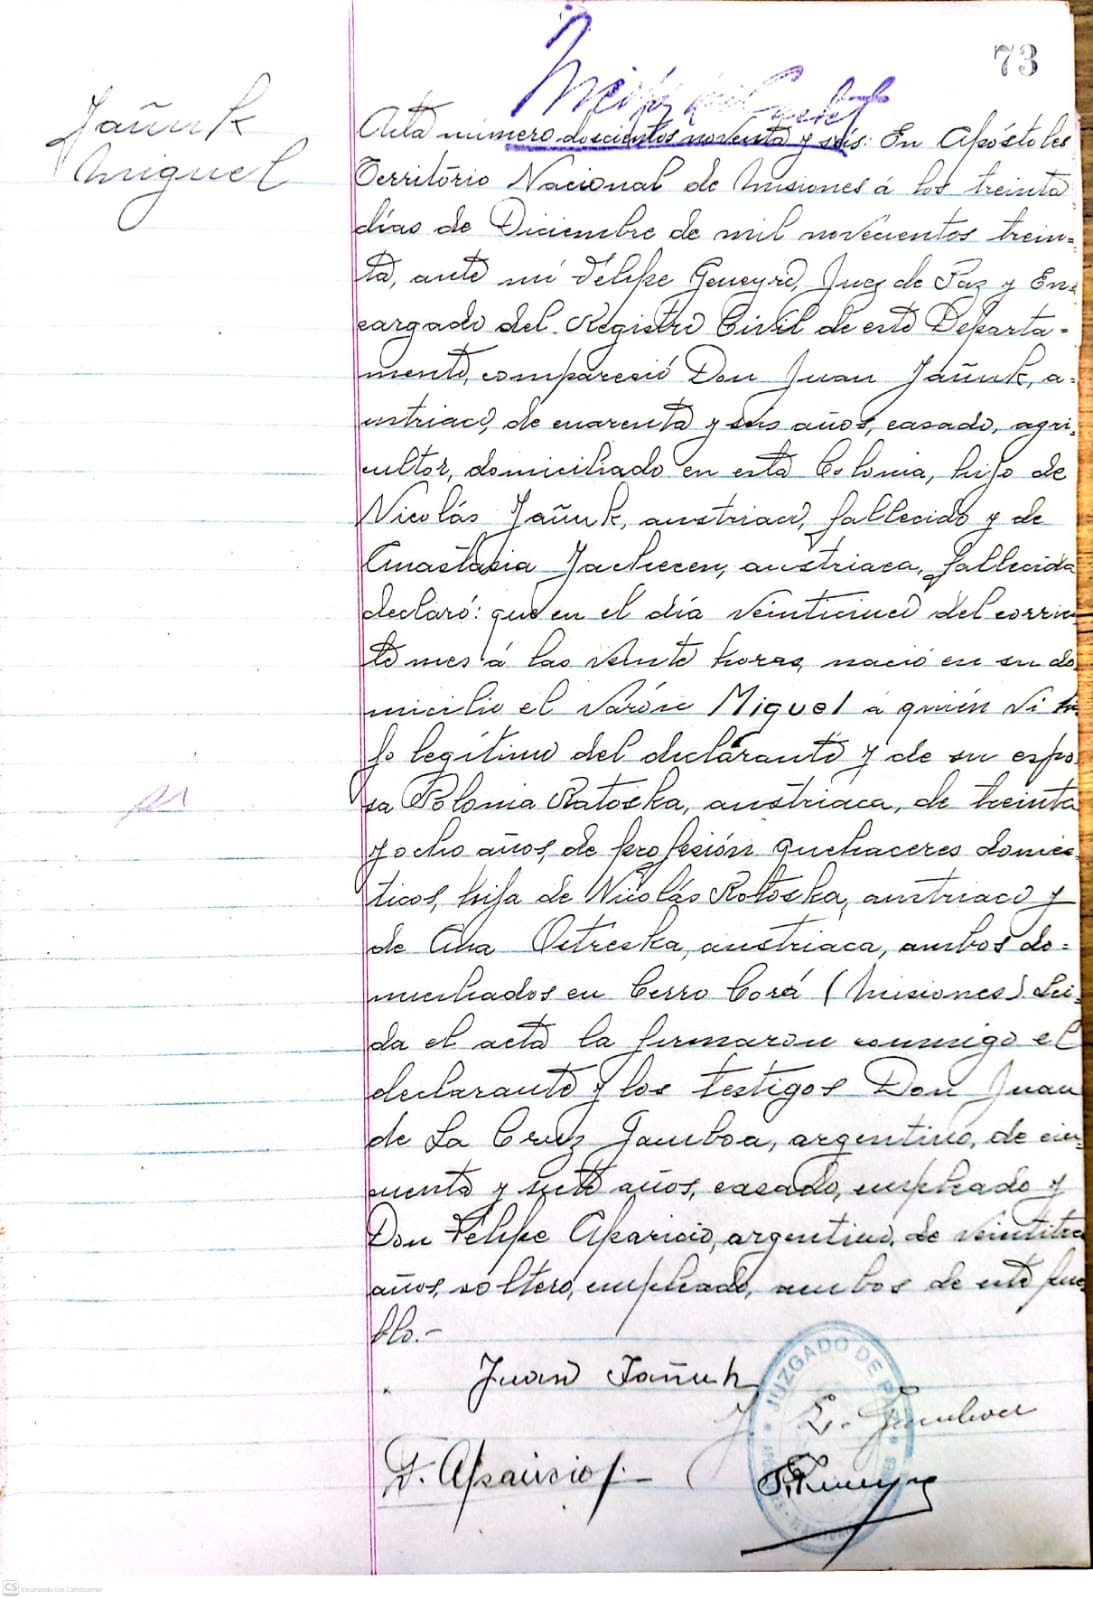 73
Jañuk
Miguel
Acta número doscientos noventa y seis: En Apóstoles
Territorio Nacional de Misiones á los treinta
días de Diciembre de mil novecientos trein-
ta, ante mí Felipe Geneyro, Juez de Paz y En-
cargado del Registro Civil de este Departa-
mento, compareció Don Juan Jañuk, a-
ustriaco, de cuarenta y seis años, casado, agri-
cultor, domiciliado en esta Colonia, hijo de
Nicolás Jañuk, austriaco, fallecido y de
Anastasia Jachecen, austriaca, fallecida
declaró: que en el día veinticinco del corrien
te mes á las veinte horas, nació en su do
micilio el varón Miguel á quién vi hi
jo legítimo del declarante y de su espo
sa Polonia Ratoska, austriaca, de treinta
y ocho años, de profesión quehaceres domés-
ticos, hija de Nicolás Rotoska, austriaco y
de Ana Ostreska, austriaca, ambos do-
miciliados en Cerro Corá (Misiones) Leí-
da el acta la firmaron conmigo el
declarante y los testigos Don Juan
de La Cruz Gamboa, argentino, de cin-
cuenta y siete años, casado, empleado y
Don Felipe Aparicio, argentino, de veintitres
años, soltero, empleado, ambos de este pue
blo.-
Juan Jañuk
J. L. Gamboa
F. Aparicio
F. Geneyro
JUZGADO DE PAZ
CS Escaneado con CamScanner